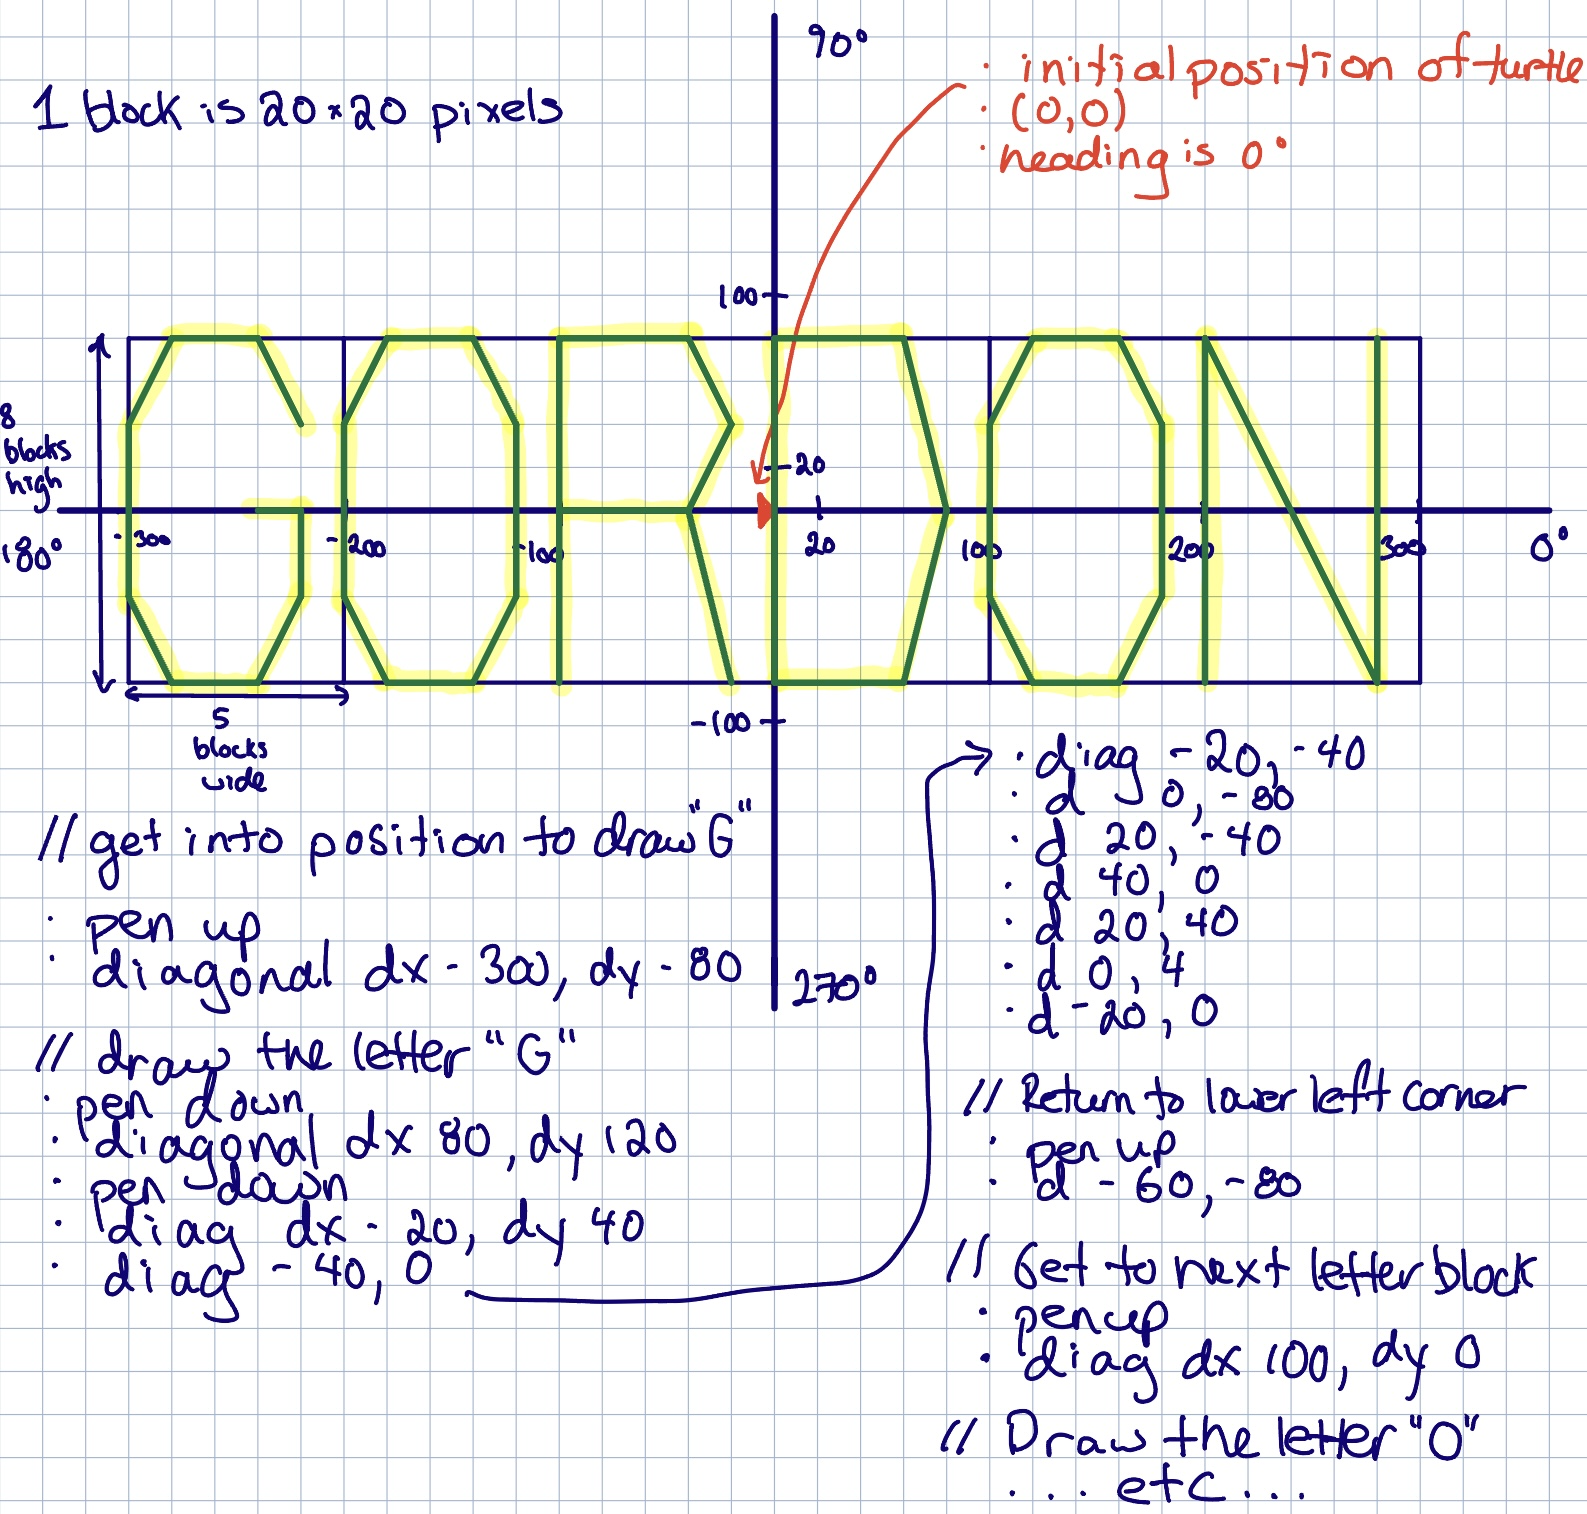 90°
· initial position of turtle
· (0,0)
· heading is 0°
1 block is 20×20 pixels
100
GORDON
8
blocks
high
20
180°
-300
-200
-100
20
100
200
300
0°
5
blocks
wide
-100
270°
// get into position to draw "G"
· pen up
· diagonal dx -300, dy -80
// draw the letter "G"
· pen down
· diagonal dx 80, dy 120
· pen down
· diag dx -20, dy 40
· diag -40, 0
· diag -20, -40
· d 0, -80
· d 20, -40
· d 40, 0
· d 20, 40
· d 0, 4
· d -20, 0
// Return to lower left corner
· pen up
· d -60, -80
// Get to next letter block
· pen up
· diag dx 100, dy 0
// Draw the letter "O"
... etc ...